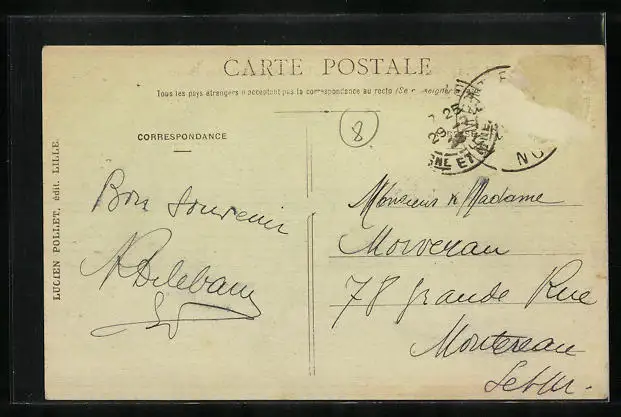 CARTE POSTALE
Tous les pays étrangers n'acceptent pas la correspondance au recto (Se renseigner
CORRESPONDANCE
8
7 25
29
NE ET
NO
LUCIEN POLLET, édit. LILLE.
Bon souvenir
Monsieur & Madame
Morveran
78 Grande Rue
Montereau